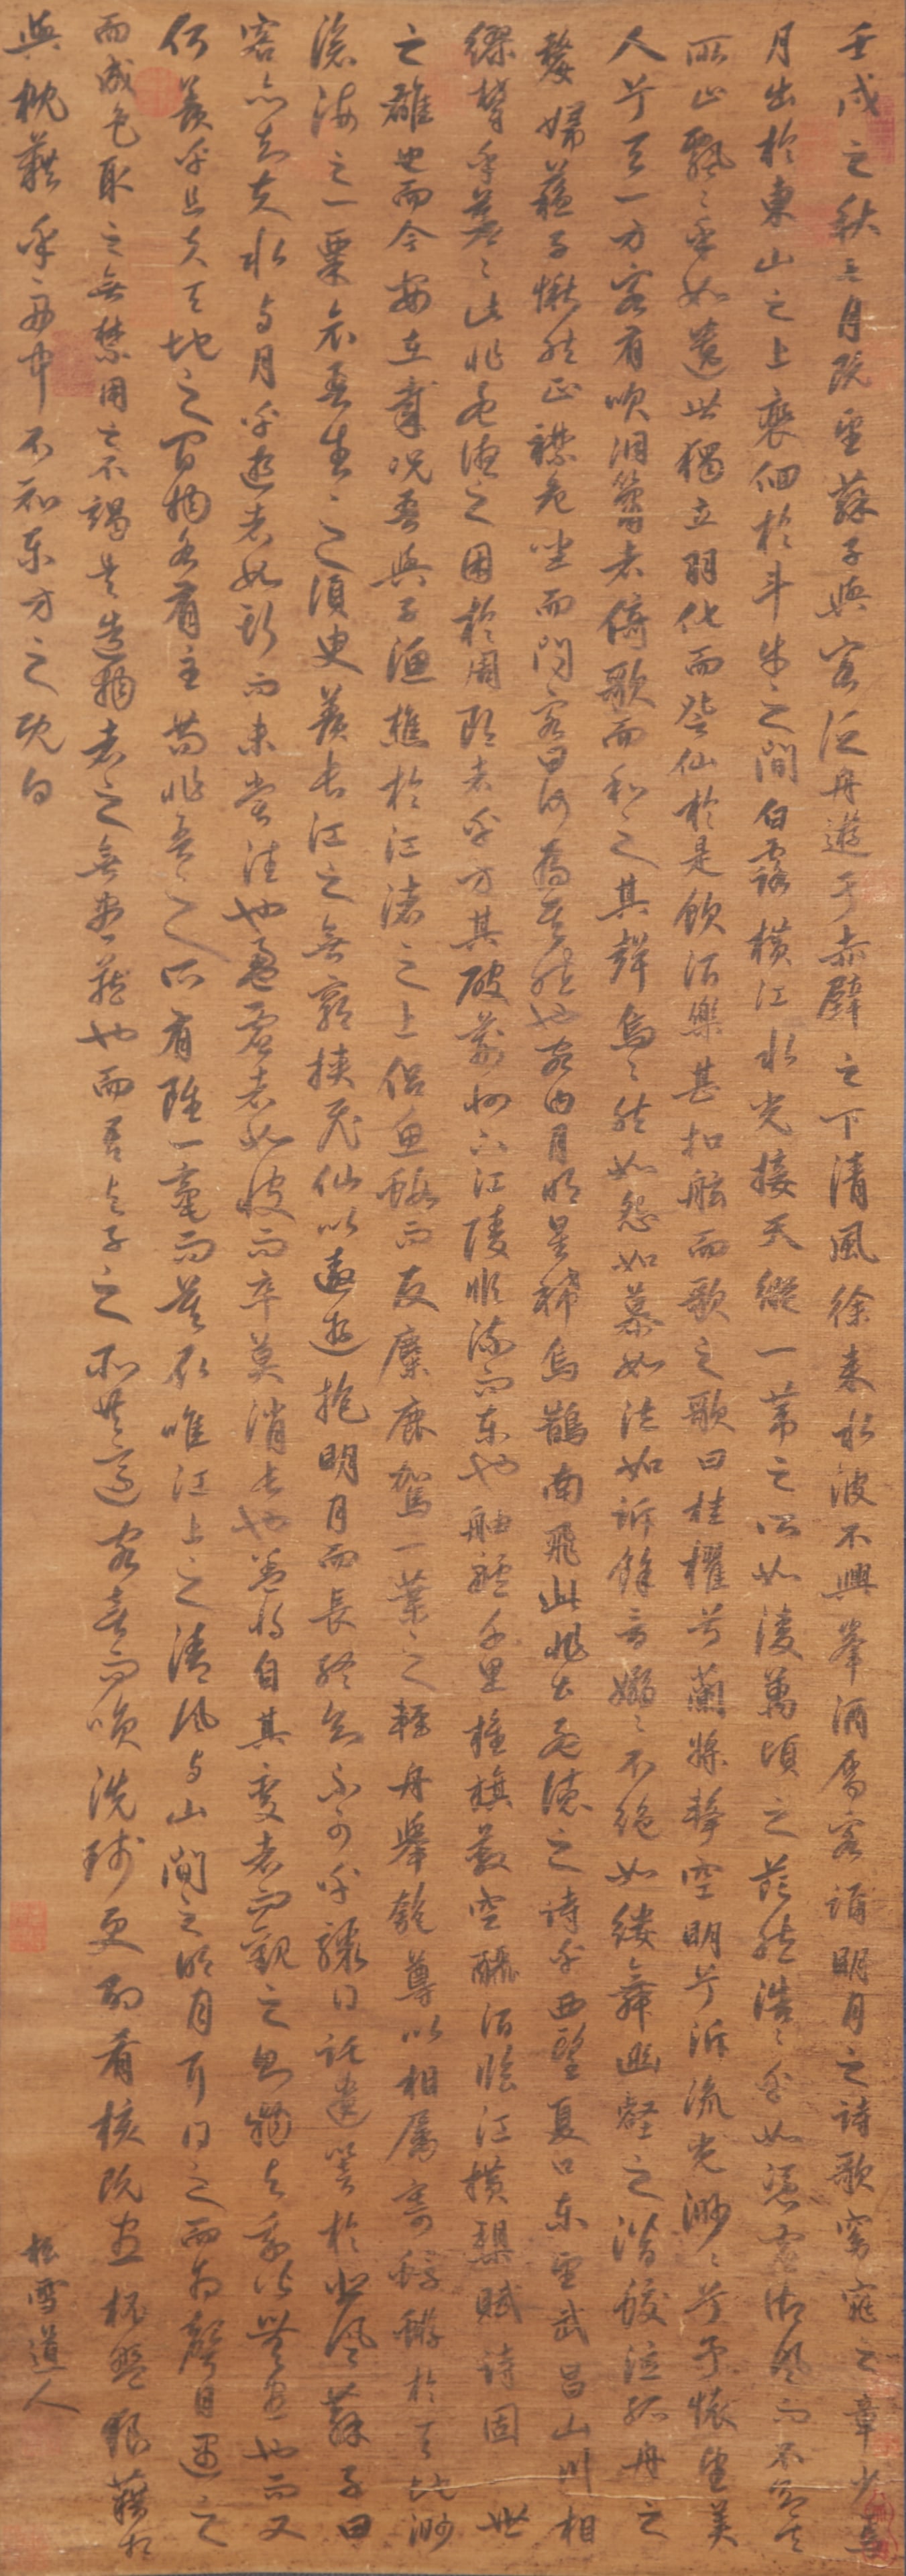 壬戌之秋七月既望蘇子與客泛舟遊于赤壁之下清風徐來水波不興舉酒屬客誦明月之詩歌窈窕之章少焉
月出於東山之上裵佪於斗牛之間白露橫江水光接天縱一葦之所如淩萬頃之茫然浩〻乎如馮虛御風而不知其
所止飄〻乎如遺世獨立羽化而登仙於是飲酒樂甚扣舷而歌之歌曰桂櫂兮蘭槳擊空明兮泝流光渺〻兮予懷望美
人兮天一方客有吹洞簫者倚歌而和之其聲烏〻然如怨如慕如泣如訴餘音嫋〻不絕如縷舞幽壑之潛蛟泣孤舟之
嫠婦蘇子愀然正襟危坐而問客曰何為其然也客曰月明星稀烏鵲南飛此非孟德之詩乎西望夏口東望武昌山川相
繆鬱乎蒼〻此非孟德之困於周郎者乎方其破荊州下江陵順流而東也舳艫千里旌旗蔽空釃酒臨江橫槊賦詩固一世
之雄也而今安在哉況吾與子漁樵於江渚之上侶魚蝦而友麋鹿駕一葉之輕舟舉匏尊以相屬寄蜉蝣於天地渺
滄海之一粟哀吾生之須臾羨長江之無窮挾飛仙以遨遊抱明月而長終知不可乎驟得託遺響於悲風蘇子曰
客亦知夫水與月乎逝者如斯而未嘗往也盈虛者如彼而卒莫消長也蓋將自其變者而觀之則物與我皆無盡也而又
何羨乎且夫天地之間物各有主苟非吾之所有雖一毫而莫取唯江上之清風與山間之明月耳得之而為聲目遇之
而成色取之無禁用之不竭是造物者之無盡藏也而吾與子之所共適客喜而笑洗盞更酌肴核既盡杯盤狼藉相
與枕藉乎舟中不知東方之既白
松雪道人